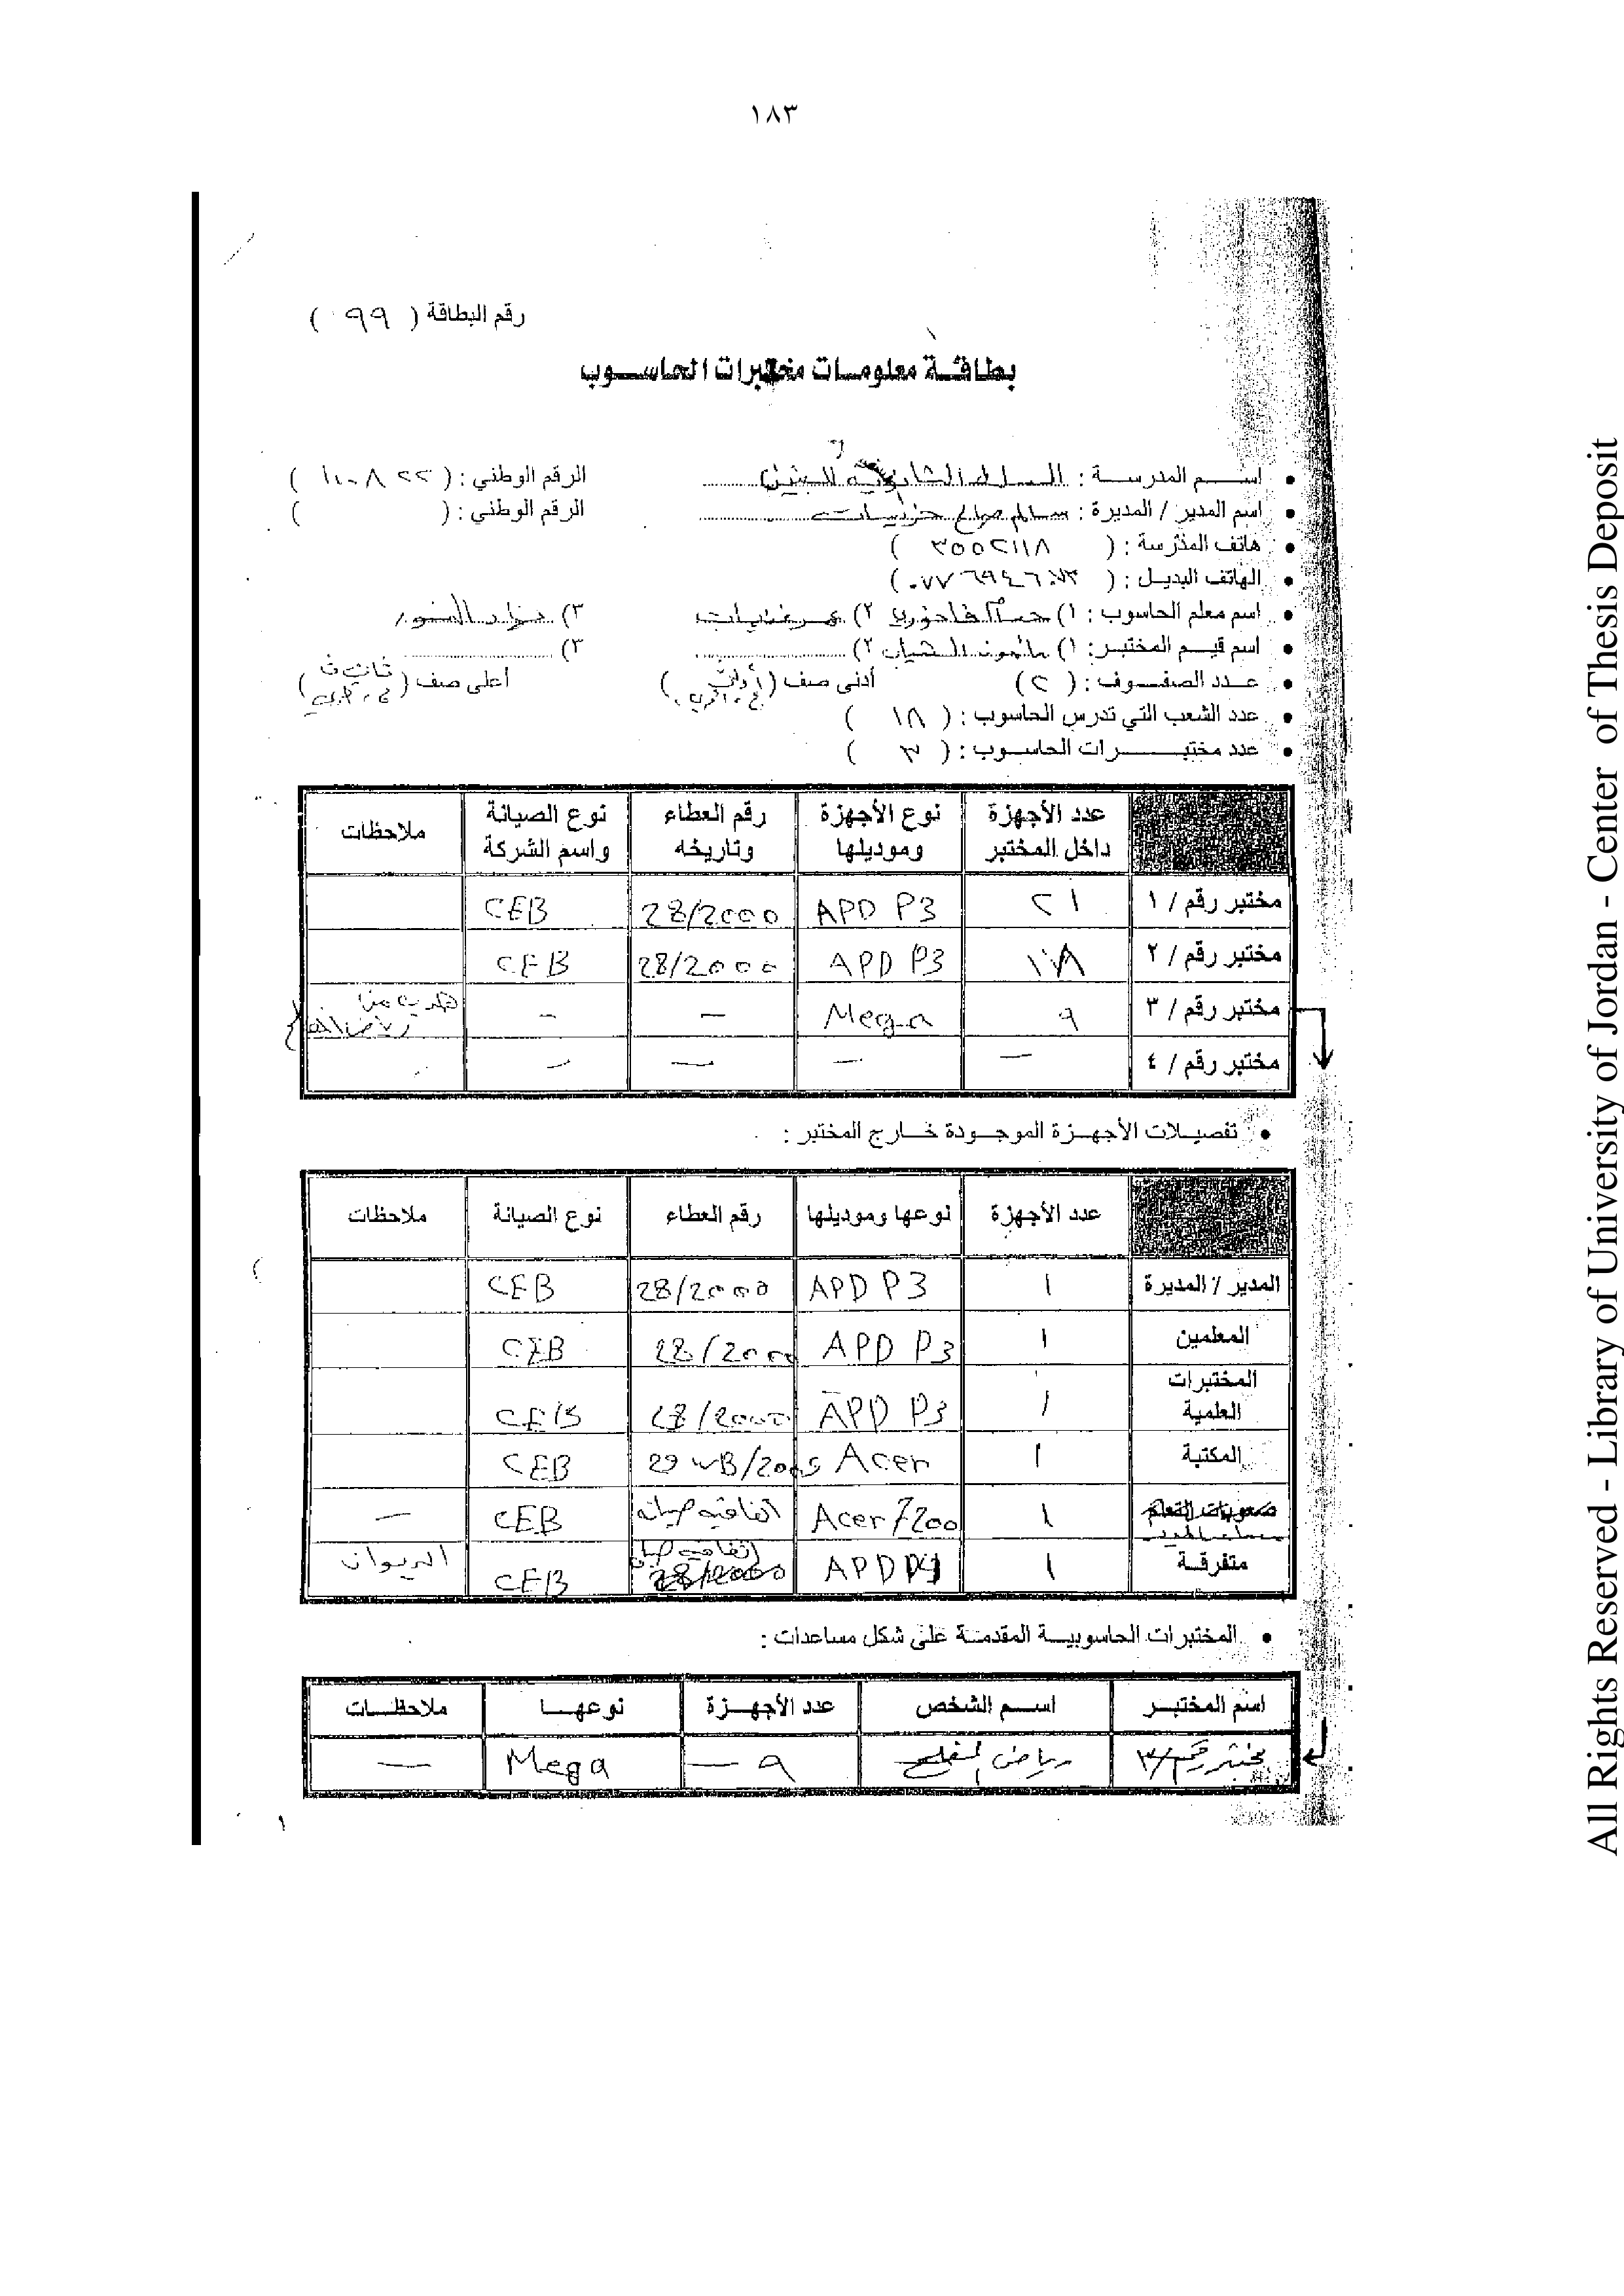 ١٨٣
رقم البطاقة ( ٩٩ )
بطاقة معلومات مختبرات الحاسوب
• اسم المدرسة : السلط الثانوية للبنين الرقم الوطني : ( )
• اسم المدير / المديرة : سالم صالح الرقم الوطني : ( )
• هاتف المدرسة : ( ٣٥٥٢١١٨ )
• الهاتف البديل : ( )
• اسم معلم الحاسوب : ١) ٢) ٣)
• اسم قيم المختبر: ١) مأمون ٢) ٣)
• عدد الصفوف : ( ٢ ) أدنى صف ( ) أعلى صف ( )
• عدد الشعب التي تدرس الحاسوب : ( ١٨ )
• عدد مختبرات الحاسوب : ( ٣ )
عدد الأجهزة داخل المختبر نوع الأجهزة وموديلها رقم العطاء وتاريخه نوع الصيانة واسم الشركة ملاحظات
مختبر رقم / ١ ٢١ APD P3 28/2000 CEB
مختبر رقم / ٢ ١٨ APD P3 28/2000 CEB
مختبر رقم / ٣ ٩ Mega – –
مختبر رقم / ٤ – – – –
• تفصيلات الأجهزة الموجودة خارج المختبر :
عدد الأجهزة نوعها وموديلها رقم العطاء نوع الصيانة ملاحظات
المدير / المديرة ١ APD P3 28/2000 CEB
المعلمين ١ APD P3 28/2000 CEB
المختبرات العلمية ١ APD P3 28/2000 CEB
المكتبة ١ Acer 29 WB/2005 CEB
صعوبات التعلم ١ Acer 7200 اتفاقية صيانة CEB –
متفرقة ١ APD 28/2000 CEB الديوان
• المختبرات الحاسوبية المقدمة على شكل مساعدات :
اسم المختبر اسم الشخص عدد الأجهزة نوعها ملاحظات
مختبر رقم/٣ رياض المفلح ٩ Mega –
All Rights Reserved - Library of University of Jordan - Center of Thesis Deposit